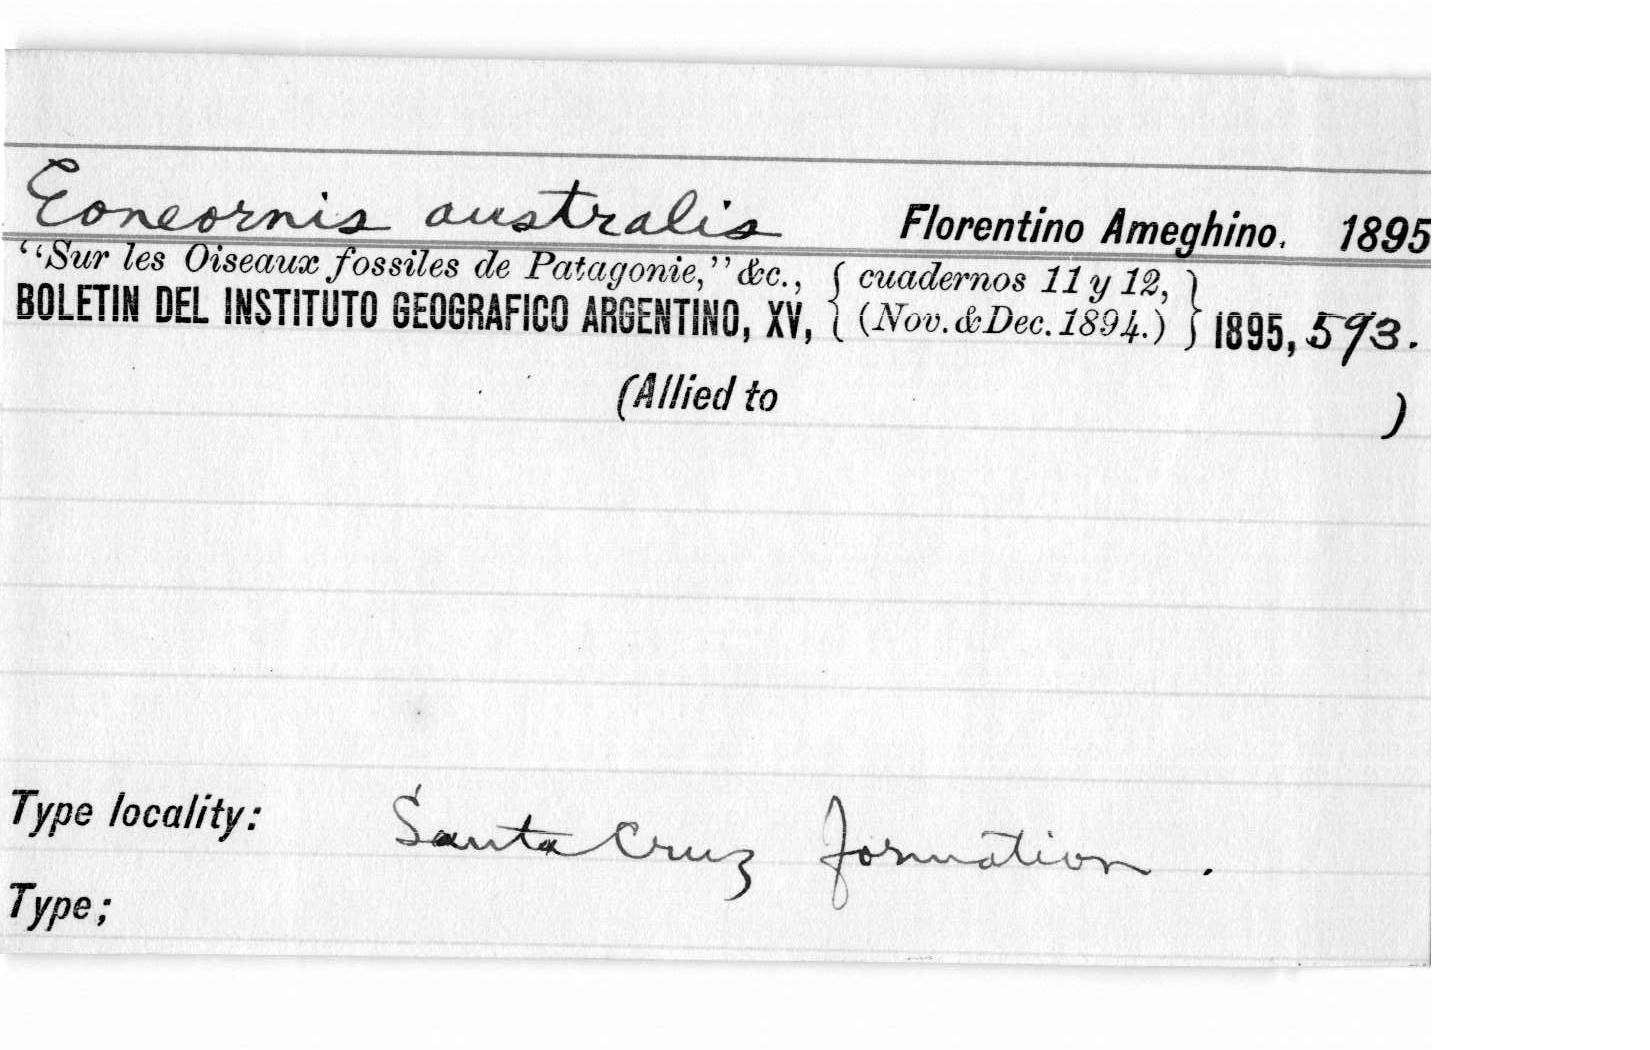 Eoneornis australis Florentino Ameghino. 1895
“Sur les Oiseaux fossiles de Patagonie,” &c., { cuadernos 11 y 12, }
BOLETIN DEL INSTITUTO GEOGRAFICO ARGENTINO, XV, { (Nov. & Dec. 1894.) } 1895, 593.
(Allied to )
Type locality: Santa Cruz formation.
Type;